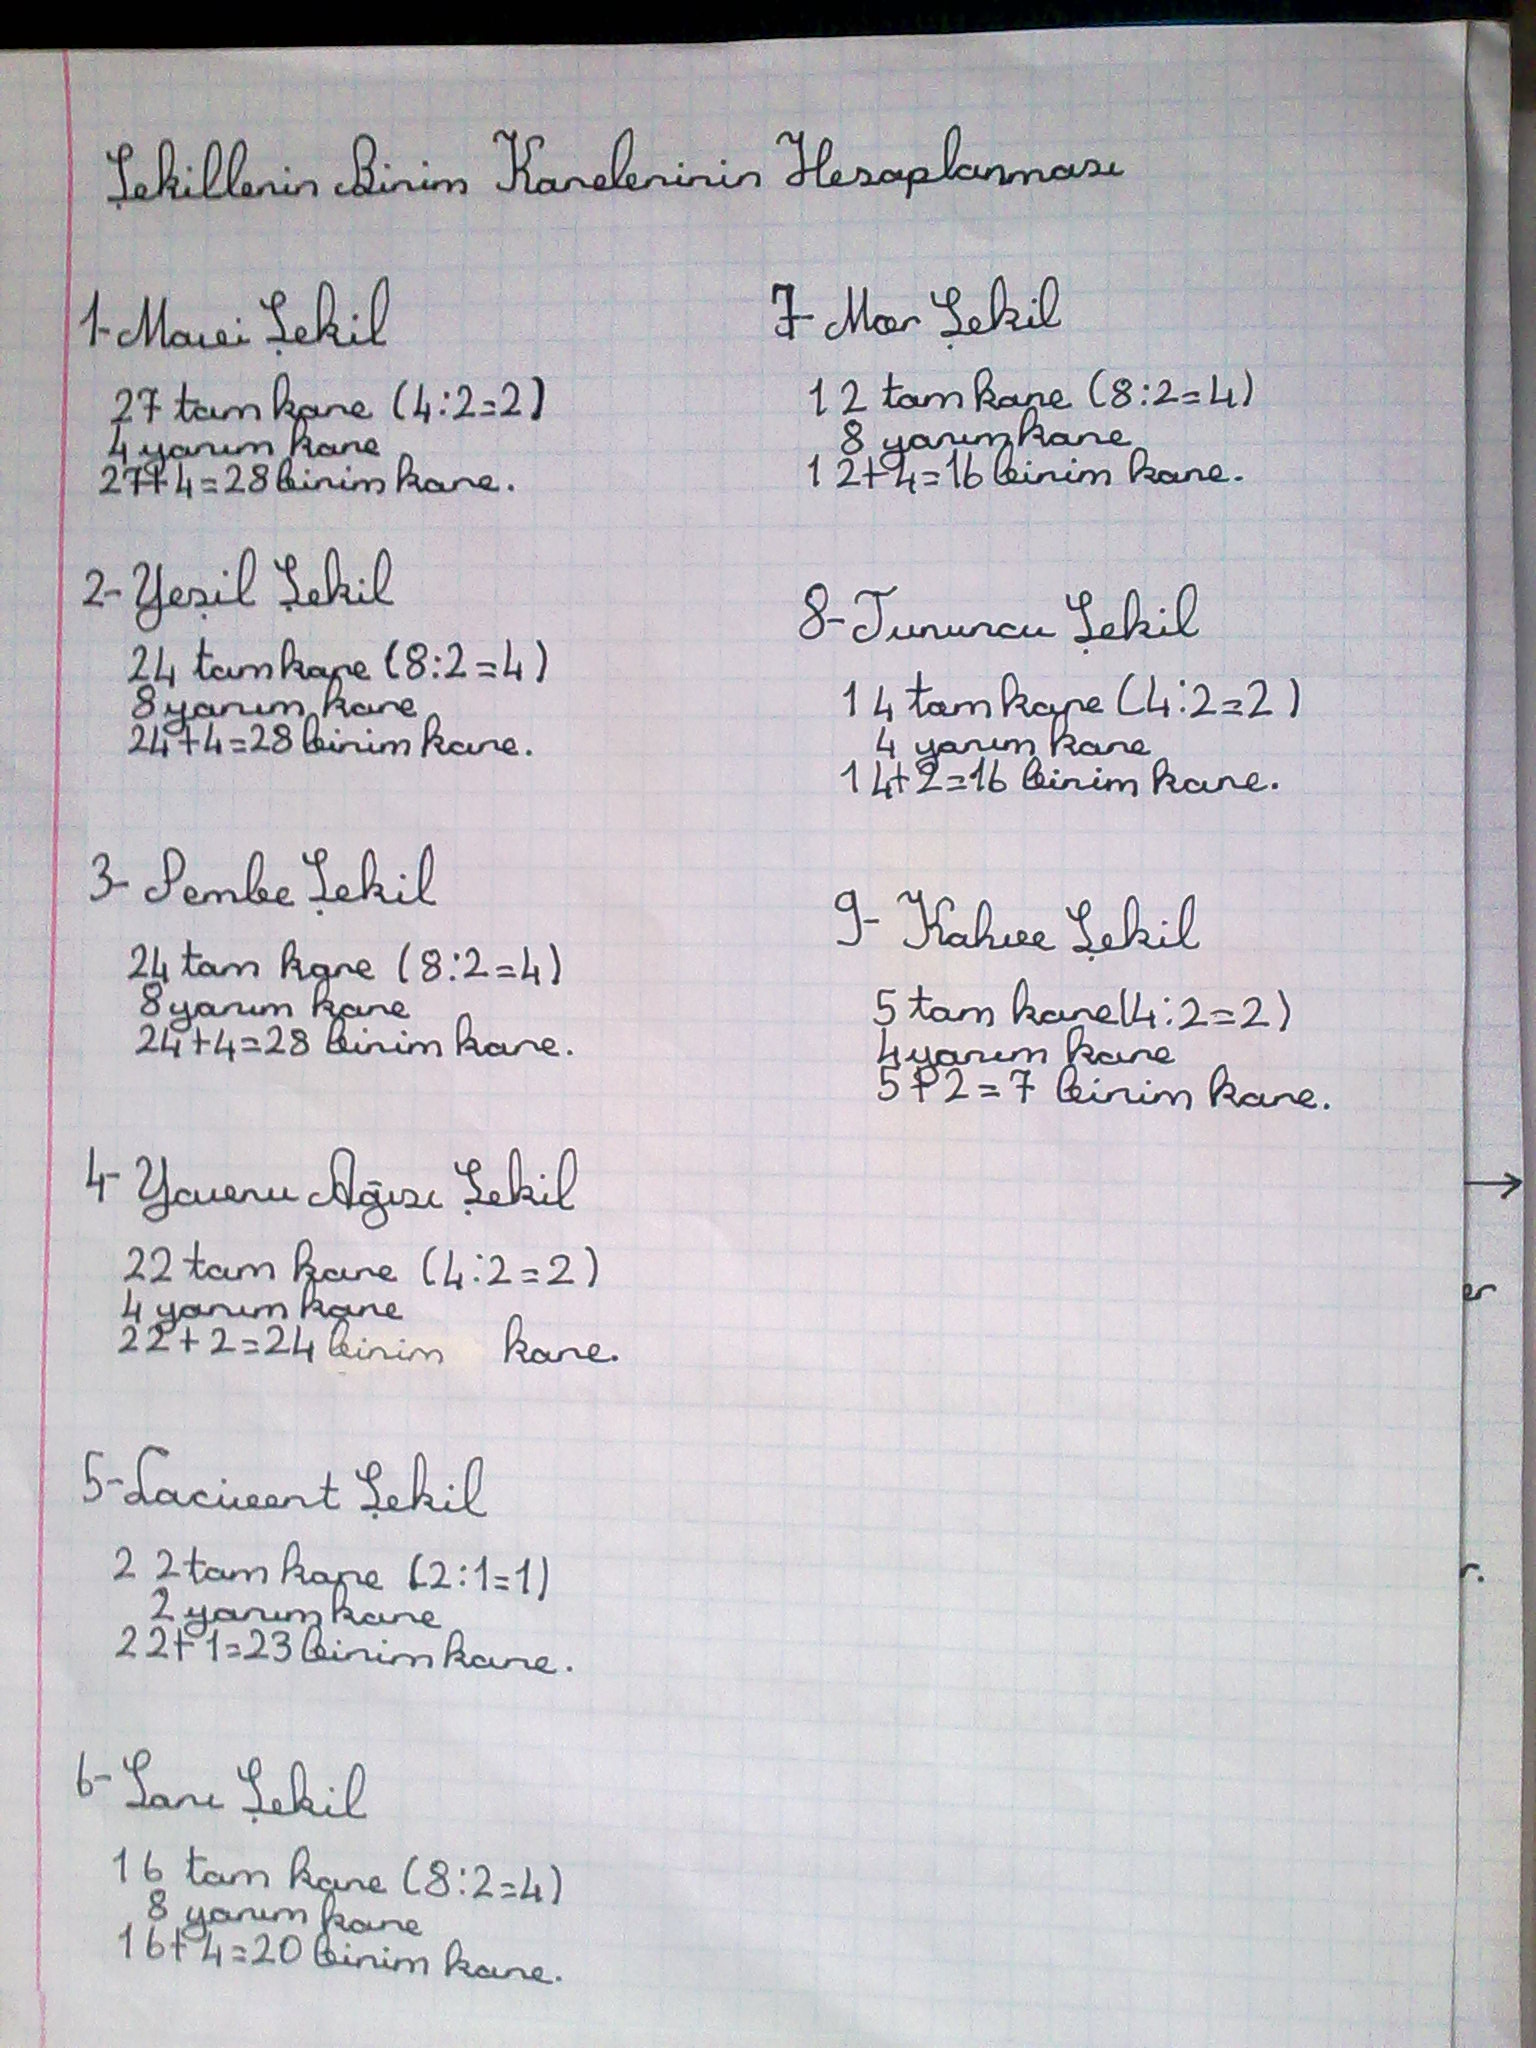 Şekillerin Birim Karelerinin Hesaplanması
1- Mavi Şekil
27 tam kare (4:2=2)
4 yarım kare
27+4=28 birim kare.
2- Yeşil Şekil
24 tam kare (8:2=4)
8 yarım kare
24+4=28 birim kare.
3- Pembe Şekil
24 tam kare (8:2=4)
8 yarım kare
24+4=28 birim kare.
4- Yavru Ağızı Şekil
22 tam kare (4:2=2)
4 yarım kare
22+2=24 birim kare.
5- Lacivert Şekil
22 tam kare (2:1=1)
2 yarım kare
22+1=23 birim kare.
6- Sarı Şekil
16 tam kare (8:2=4)
8 yarım kare
16+4=20 birim kare.
7- Mor Şekil
12 tam kare (8:2=4)
8 yarım kare
12+4=16 birim kare.
8- Turuncu Şekil
14 tam kare (4:2=2)
4 yarım kare
14+2=16 birim kare.
9- Kahve Şekil
5 tam kare (4:2=2)
4 yarım kare
5+2=7 birim kare.